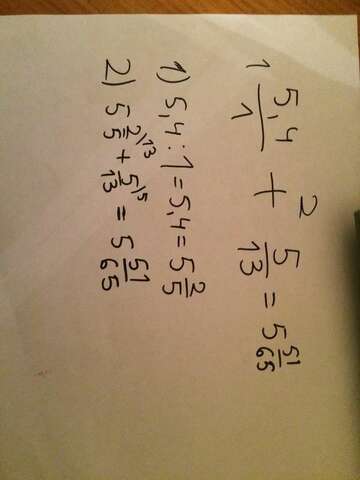 1 5,4/1 + 2 5/13 = 5 51/65
1) 5,4 : 1 = 5,4 = 5 2/5
2) 5 2/5 )13 + 5/13 )5 = 5 51/65